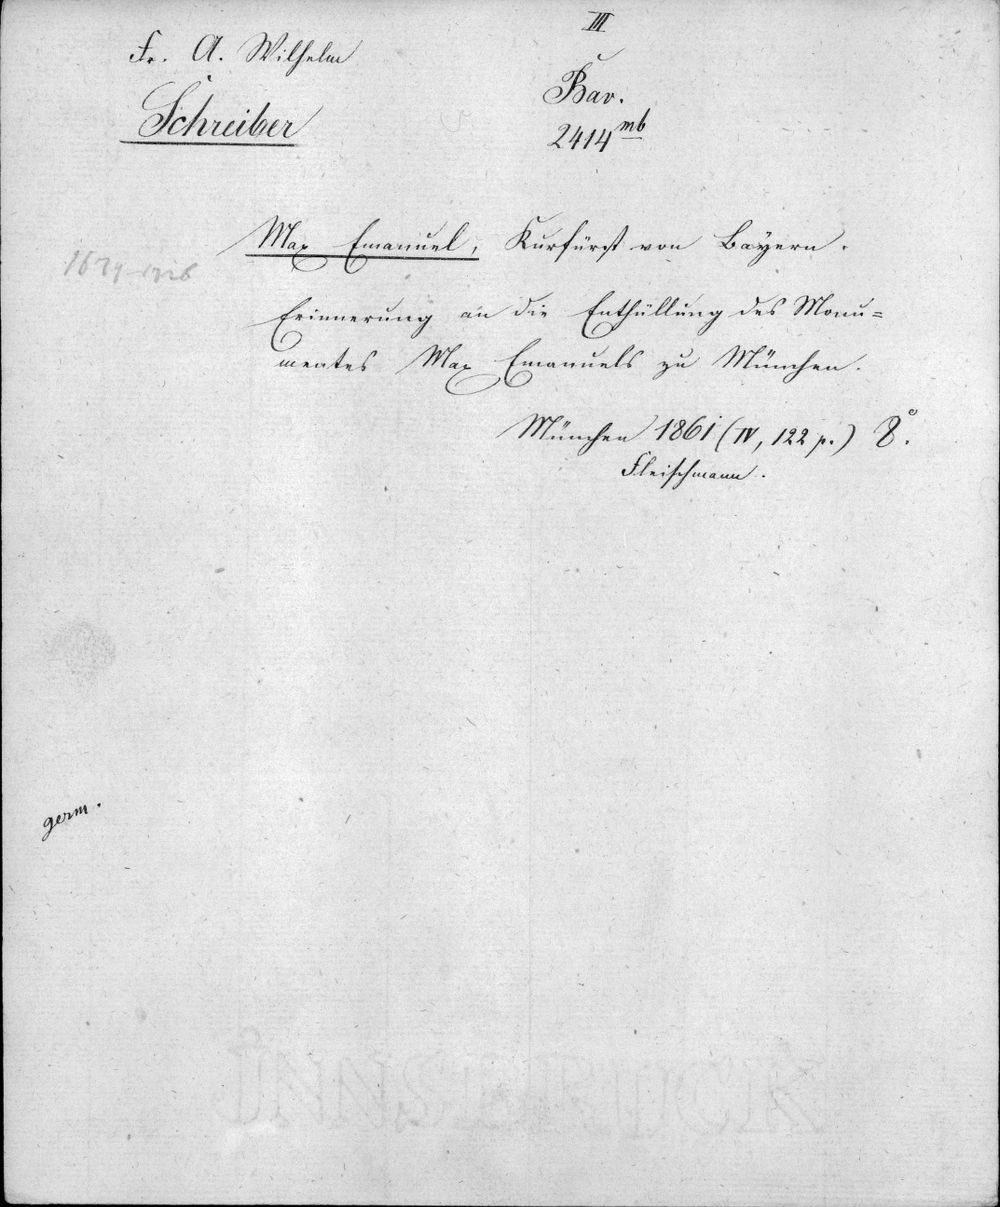 III
Fr. A. Wilhelm
Schreiber
Bav.
2414 mb
Max Emanuel, Kurfürst von Bayern.
1679-1726
Erinnerung an die Enthüllung des Monu=
mentes Max Emanuels zu München.
München 1861 (IV, 122 p.) 8°.
Fleischmann.
germ.